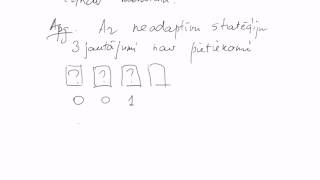 Apg. Ar neadaptīvu stratēģiju
3 jautājumi nav pietiekami
? ? ?
0 0 1